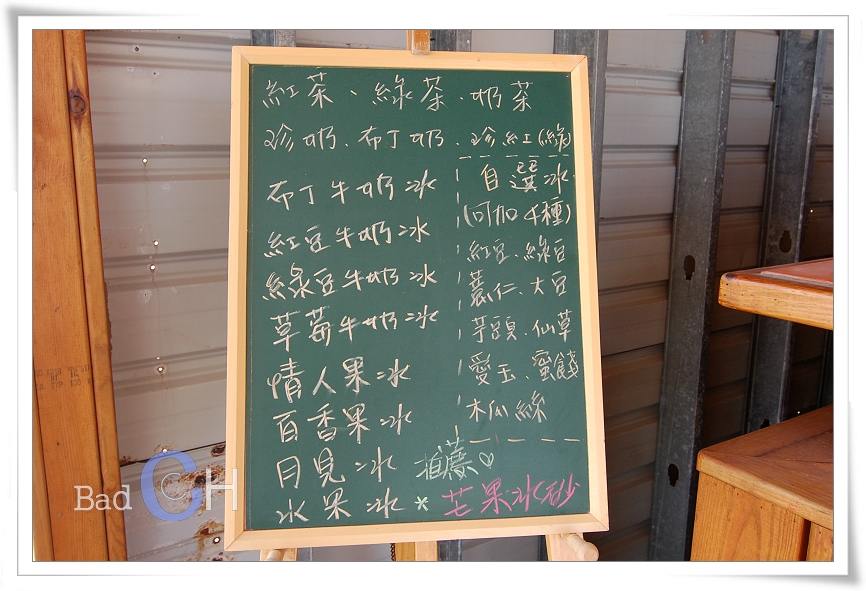 紅茶、綠茶、奶茶
珍奶、布丁奶、珍紅(綠)
布丁牛奶冰
紅豆牛奶冰
綠豆牛奶冰
草莓牛奶冰
情人果冰
百香果冰
月見冰
水果冰
自選冰
(可加4種)
紅豆、綠豆
薏仁、大豆
芋頭、仙草
愛玉、蜜餞
木瓜絲
推薦♡
*芒果冰砂
Bad CCH